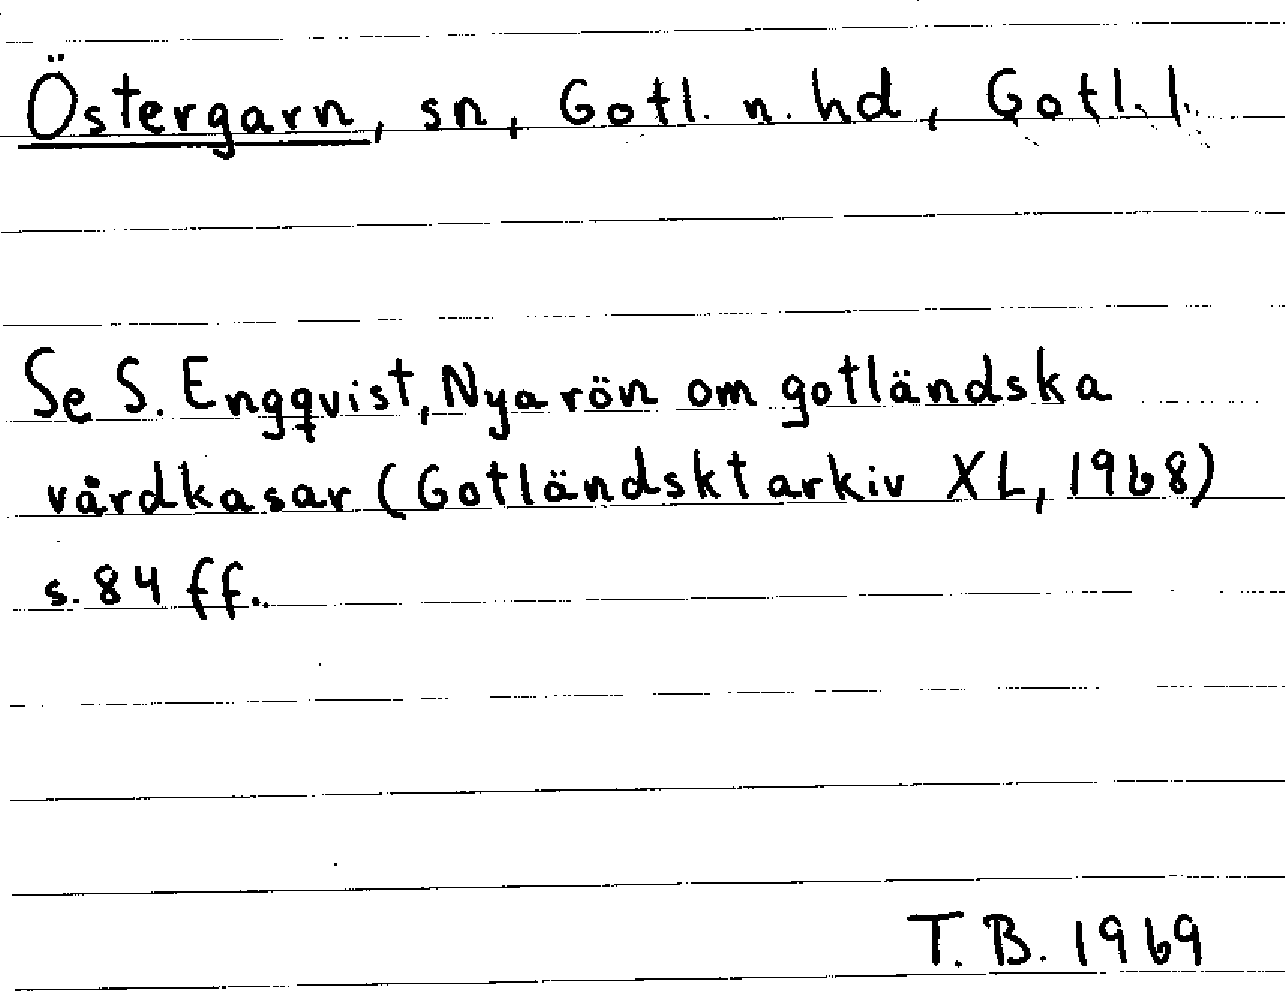 Östergarn, sn, Gotl. n. hd, Gotl. l.
Se S. Engqvist, Nya rön om gotländska
vårdkasar (Gotländskt arkiv XL, 1968)
s. 84 ff.
T. B. 1969